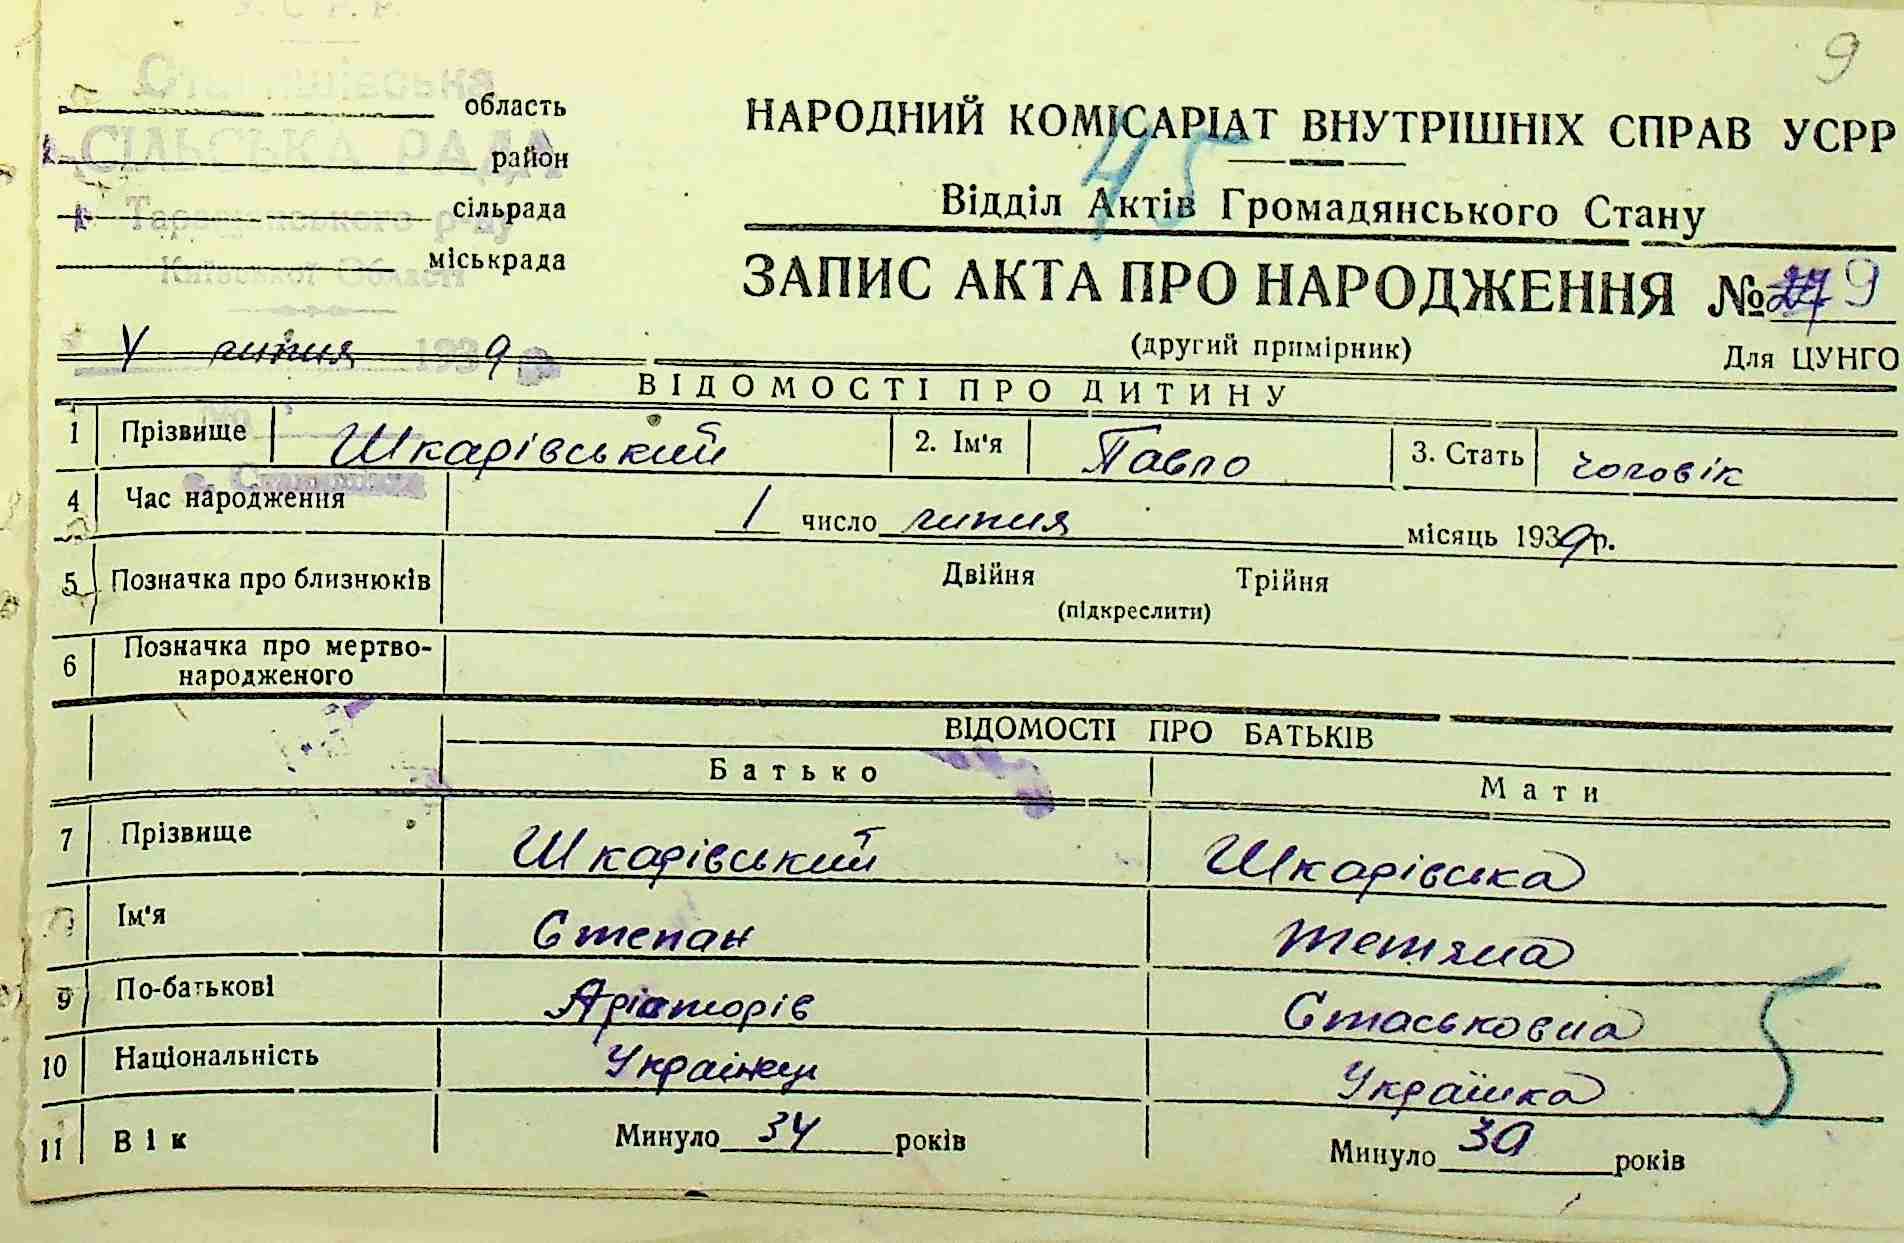 У. С Р. Р.
9
Станишівська
область
СІЛЬСЬКА РАДА
район
Таращанського р-ну
сільрада
Київської Області
міськрада
НАРОДНИЙ КОМІСАРІАТ ВНУТРІШНІХ СПРАВ УСРР
45
Відділ Актів Громадянського Стану
ЗАПИС АКТА ПРО НАРОДЖЕННЯ № 9
(другий примірник) Для ЦУНГО
У липня 1939 р
ВІДОМОСТІ ПРО ДИТИНУ
№
1 Прізвище Шкарівський 2. Ім'я Павло 3. Стать чоловік
4 Час народження 1 число липня місяць 1939 р.
5 Позначка про близнюків Двійня Трійня
(підкреслити)
6 Позначка про мертво-
народженого
ВІДОМОСТІ ПРО БАТЬКІВ
Батько Мати
7 Прізвище Шкарівський Шкарівська
Ім'я Степан Тетяна
9 По-батькові Стаськовна
5
10 Національність Українец Українка
11 Вік Минуло 34 років Минуло 30 років